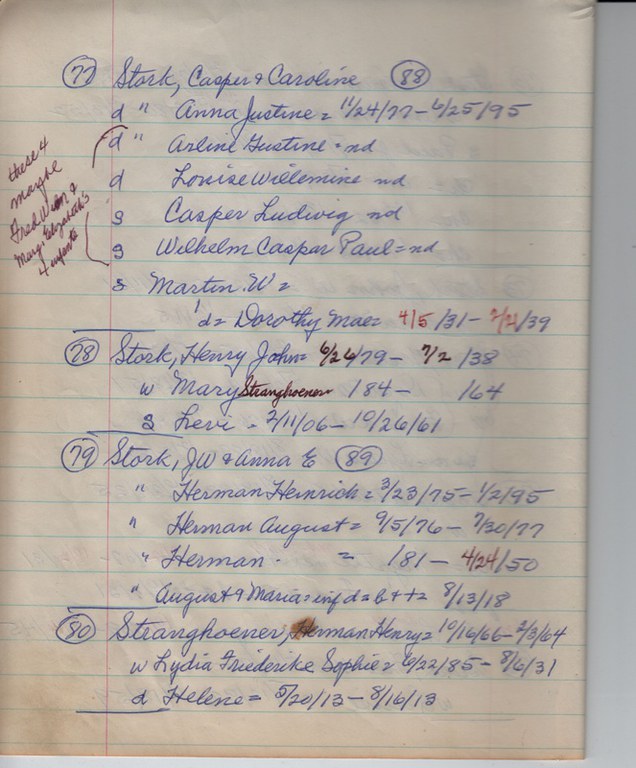 77 Stork, Casper & Caroline 88
d " Anna Justine = 11/24/77 - 6/25/95
d " Arline Gustine = nd
d Louise Willemine nd
s Casper Ludwig nd
s Wilhelm Caspar Paul = nd
s Martin W =
d = Dorothy Mae = 4/5/31 - /39
these 4
maybe
Fred Wm &
Mary Elizabeth's
4 infants
78 Stork, Henry John = 6/26/79 - 7/2/38
w Mary Stranghoener /84 - /64
s Levi - 2/11/06 - 10/26/61
79 Stork, JW & Anna E 89
" Herman Heinrich = 3/23/75 - 1/2/95
" Herman August = 9/5/76 - 7/30/77
" Herman - = /81 - 4/24/50
" August & Maria = inf d = b + + = 8/13/18
80 Stranghoener, Herman Henry = 10/16/66 - 2/3/64
w Lydia Friederike Sophie = 6/22/85 - 8/6/31
d Helene = 5/20/13 - 8/16/13